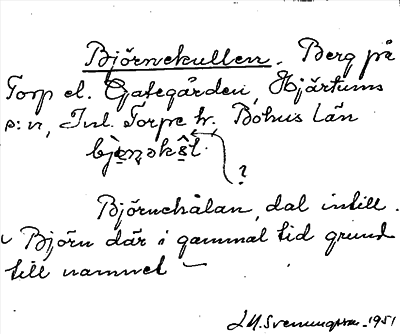 Björnekullen. Berg på
Torp el. Gategården, Hjärtums
s:n, Inl. Torpe hr. Bohus Län
?
Björnehålan, dal intill.
Björn där i gammal tid grund
till namnet —
1951